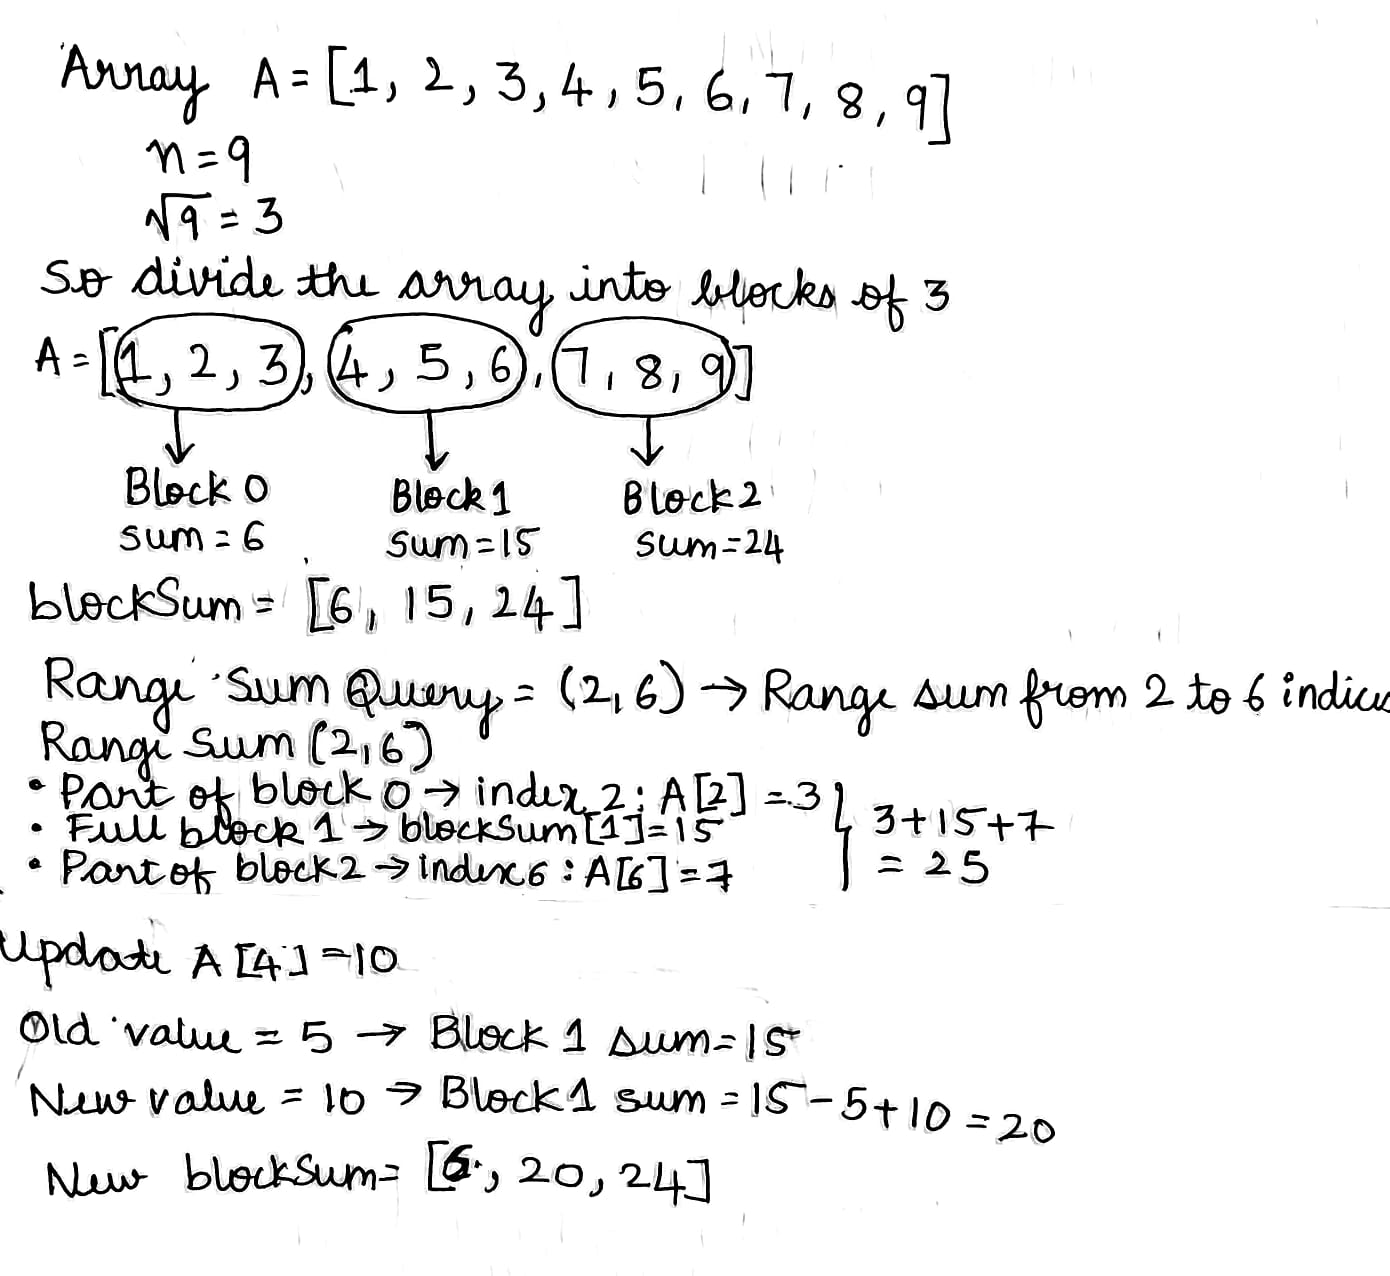 Array A = [1, 2, 3, 4, 5, 6, 7, 8, 9]
n = 9
√9 = 3
So divide the array into blocks of 3
A = [1, 2, 3, 4, 5, 6, 7, 8, 9]
Block 0 Block 1 Block 2
sum = 6 sum = 15 sum = 24
blockSum = [6, 15, 24]
Range Sum Query = (2, 6) → Range sum from 2 to 6 indices
Range Sum (2, 6)
• Part of block 0 → index 2 : A[2] = 3
• Full block 1 → blockSum[1] = 15 } 3 + 15 + 7
• Part of block 2 → index 6 : A[6] = 7 = 25
Update A[4] = 10
Old value = 5 → Block 1 sum = 15
New value = 10 → Block 1 sum = 15 - 5 + 10 = 20
New blockSum = [6, 20, 24]